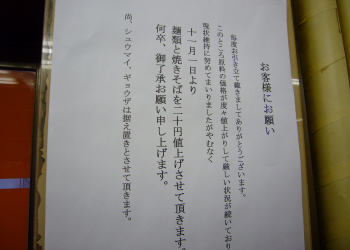 お客様にお願い
毎度お引き立て戴きましてありがとうございます。
このところ原料の価格が度々値上がりして厳しい状況が続いており
現状維持に努めてまいりましたがやむなく
十一月一日より
麺類と焼きそばを二十円値上げさせて頂きます。
何卒、御了承お願い申し上げます。
尚、シュウマイ、ギョウザは据え置きとさせて頂きます。